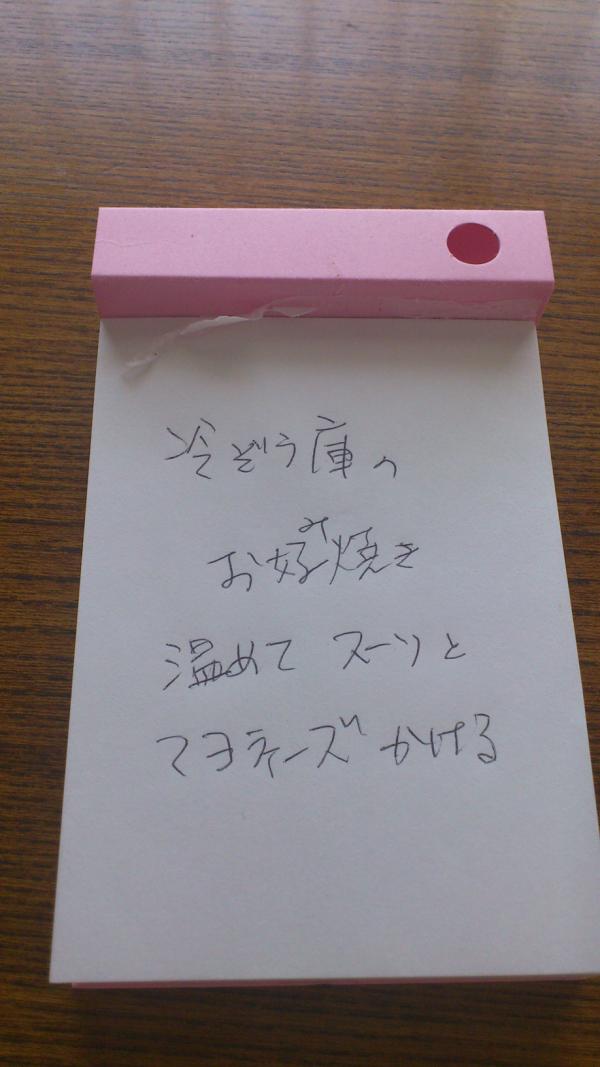 冷ぞう庫の
お好み焼き
温めて スーソと
マヨネーズ かける